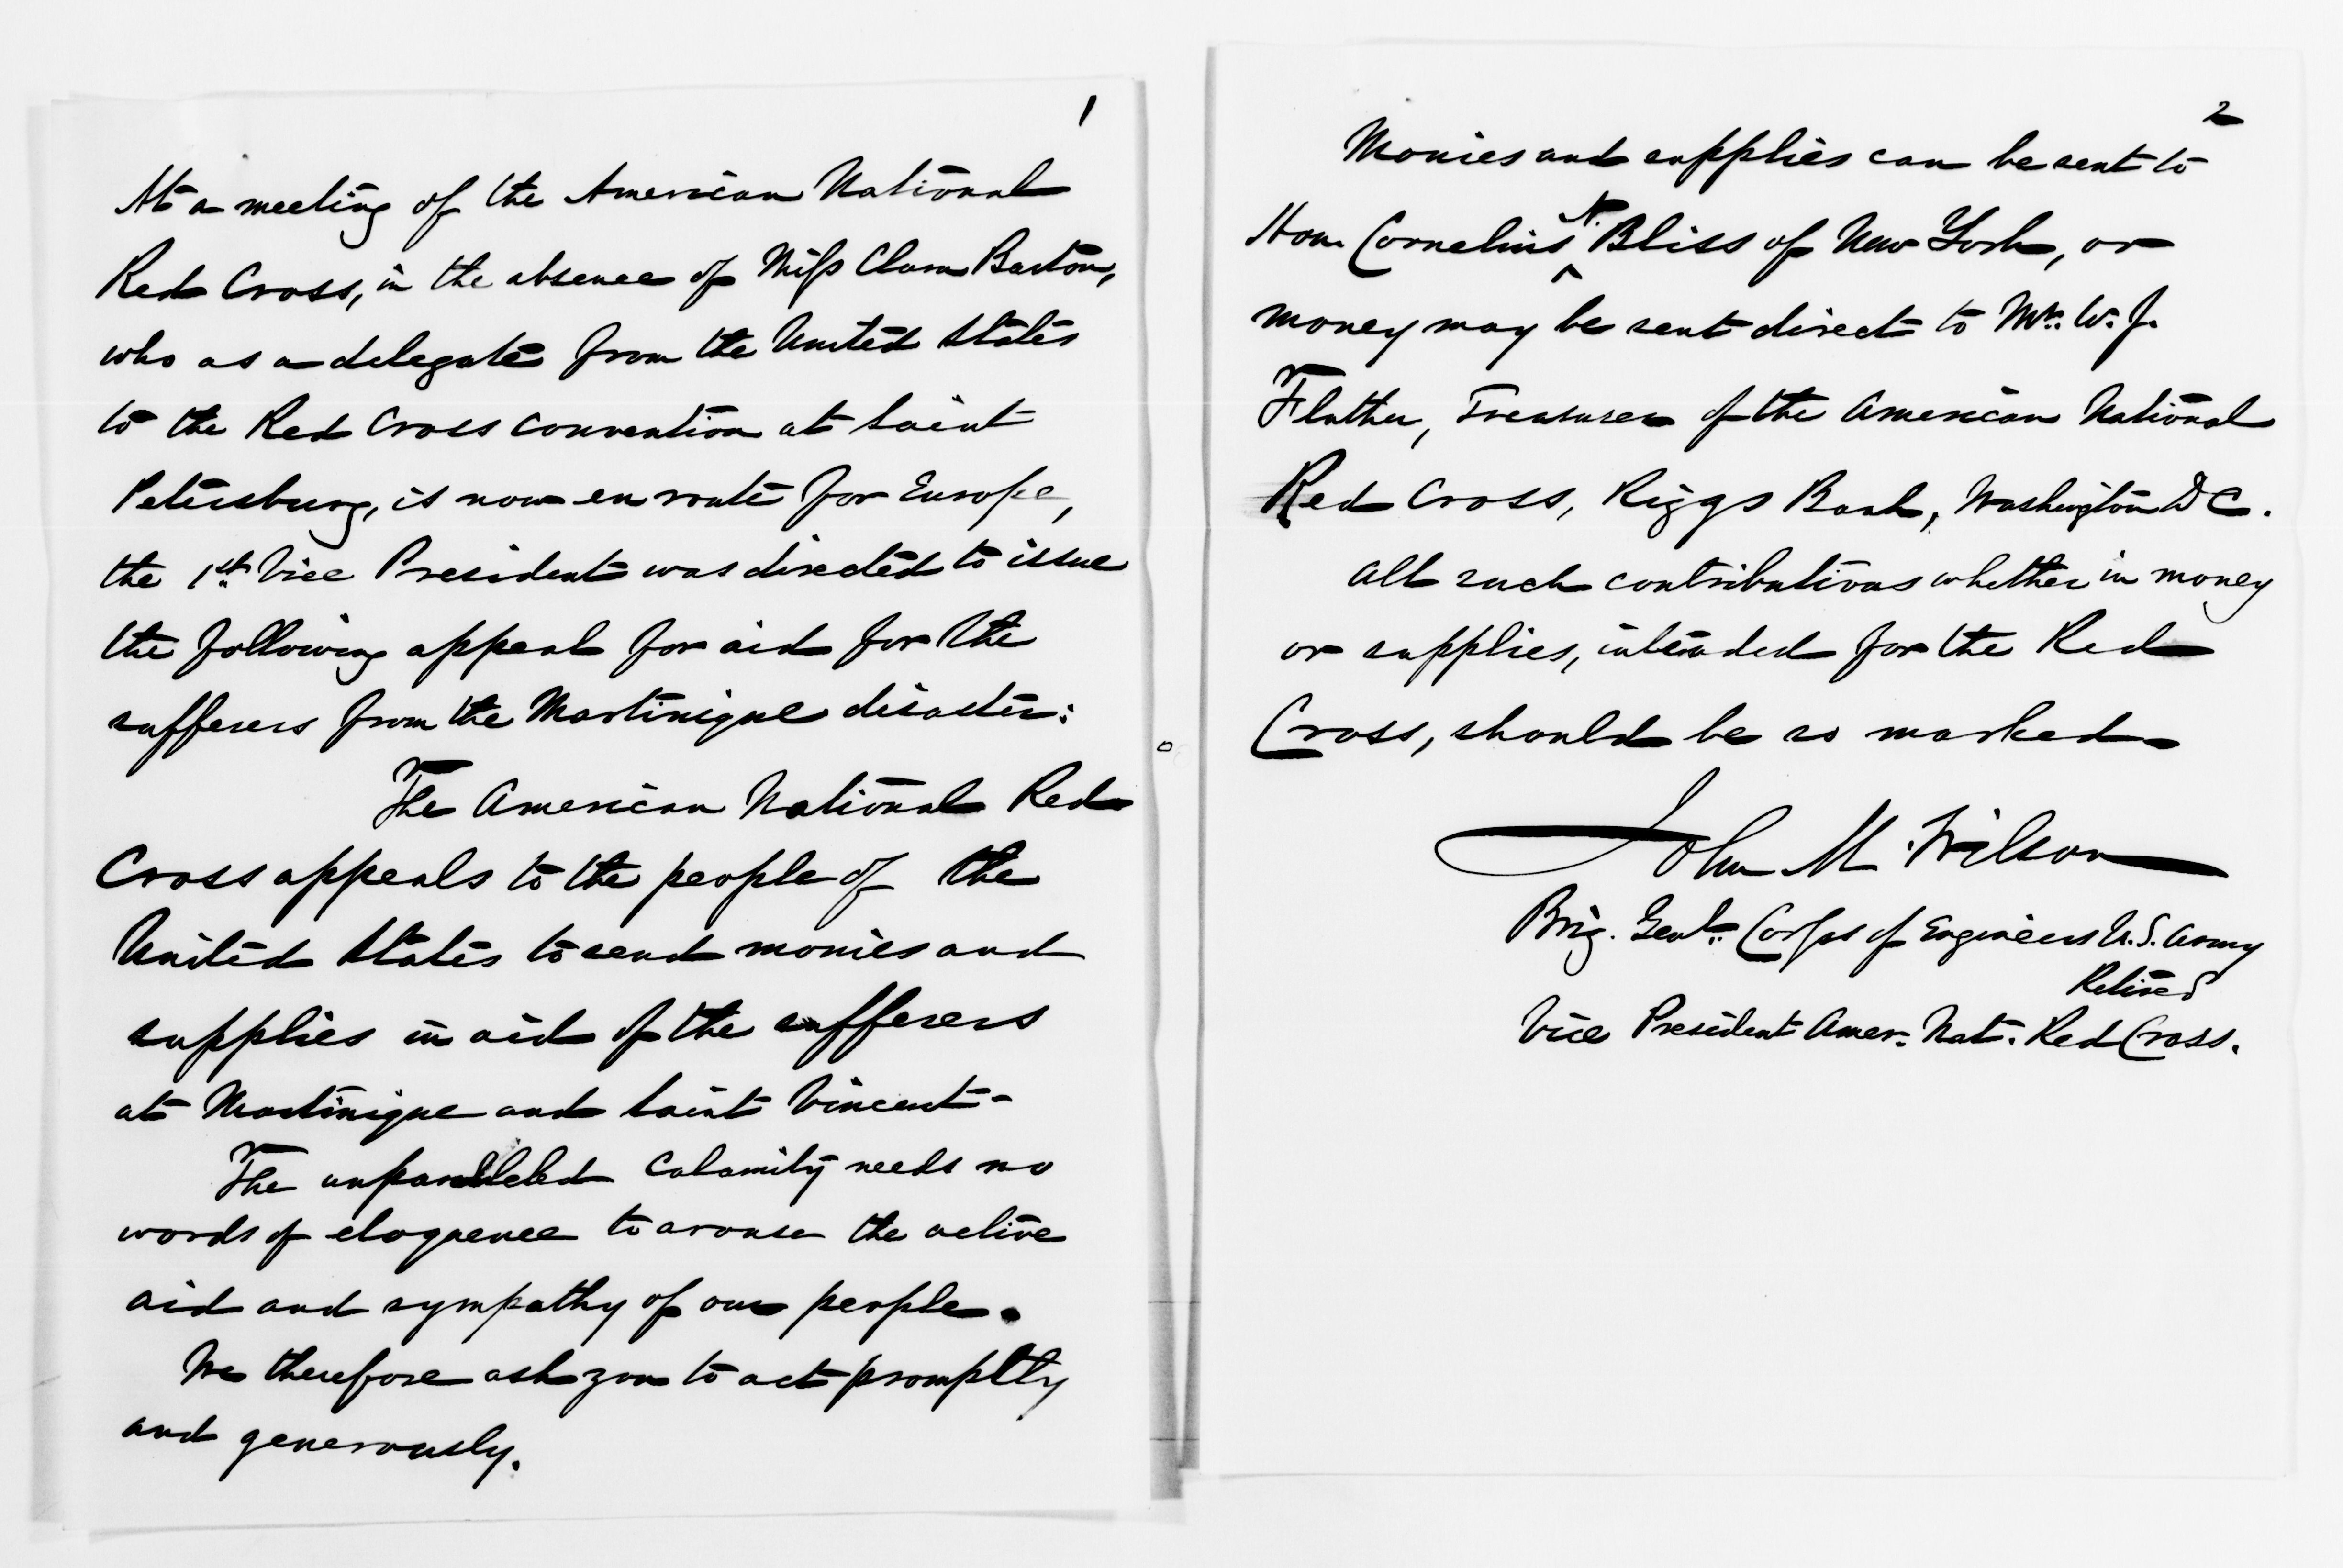 1
At a meeting of the American National
Red Cross, in the absence of Miss Clara Barton,
who as a delegate from the United States
to the Red Cross convention at Saint
Petersburg, is now en route for Europe,
the 1st Vice President was directed to issue
the following appeal for aid for the
sufferers from the Martinique disaster:
The American National Red
Cross appeals to the people of the
United States to send monies and
supplies in aid of the sufferers
at Martinique and Saint Vincent-
The unparalleled calamity needs no
words of eloquence to arouse the active
aid and sympathy of our people.
We therefore ask you to act promptly
and generously.
2
Monies and supplies can be sent to
Hon. Cornelius N. Bliss of New York, or
money may be sent direct to Mr. W. J.
Flather, Treasurer of the American National
Red Cross, Riggs Bank, Washington D C.
All such contributions whether in money
or supplies, intended for the Red
Cross, should be so marked
John M. Wilson
Brig. Genl. Corps of Engineers U.S. Army
Retired
Vice President Amer. Nat. Red Cross.